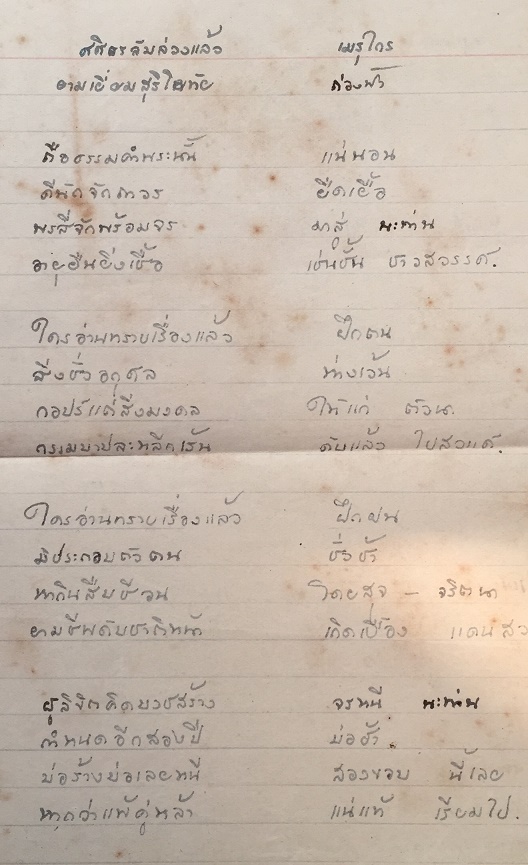 ศศิธรลับล่วงแล้ว เมรุไกร
ยามเยี่ยมสุริโยทัย ก่องฟ้า
ถือธรรมคำพระนั้น แน่นอน
ดีนักจักถาวร ยืดเยื้อ
พรสี่จักพร้อมจร มาสู่ นะท่าน
อายุยืนยิ่งเชื้อ เช่นชั้น ชาวสวรรค์.
ใครอ่านทราบเรื่องแล้ว ฝึกตน
สิ่งชั่วอกุศล ห่างเว้น
กอปร์แต่สิ่งมงคล ให้แก่ ตัวนา
กรรมบาปละหลีกเร้น ดับแล้ว ไปสวรรค์.
ใครอ่านทราบเรื่องแล้ว ฝึกฝน
มิประกอบตัวตน ชั่วช้า
หากินสืบชีวน โดยสุจ – จริตนา
ยามชีพดับชาติหน้า เกิดเบื้อง แดนสว
ผู้ลิขิตคิดบวชสร้าง จรหนี นะท่าน
กำหนดอีกสองปี บ่อช้า
บ่อร้างบ่อเลยหนี สองขอบ นี้เลย
หากว่าแพ้คู่หล้า แน่แท้ เรียมไป.